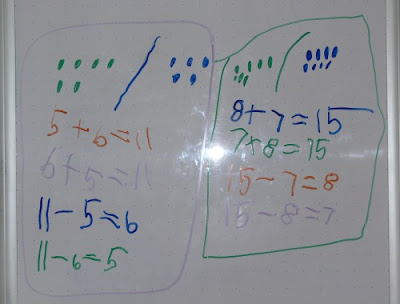 5+6=11
6+5=11
11-5=6
11-6=5
8+7=15
7+8=15
15-7=8
15-8=7